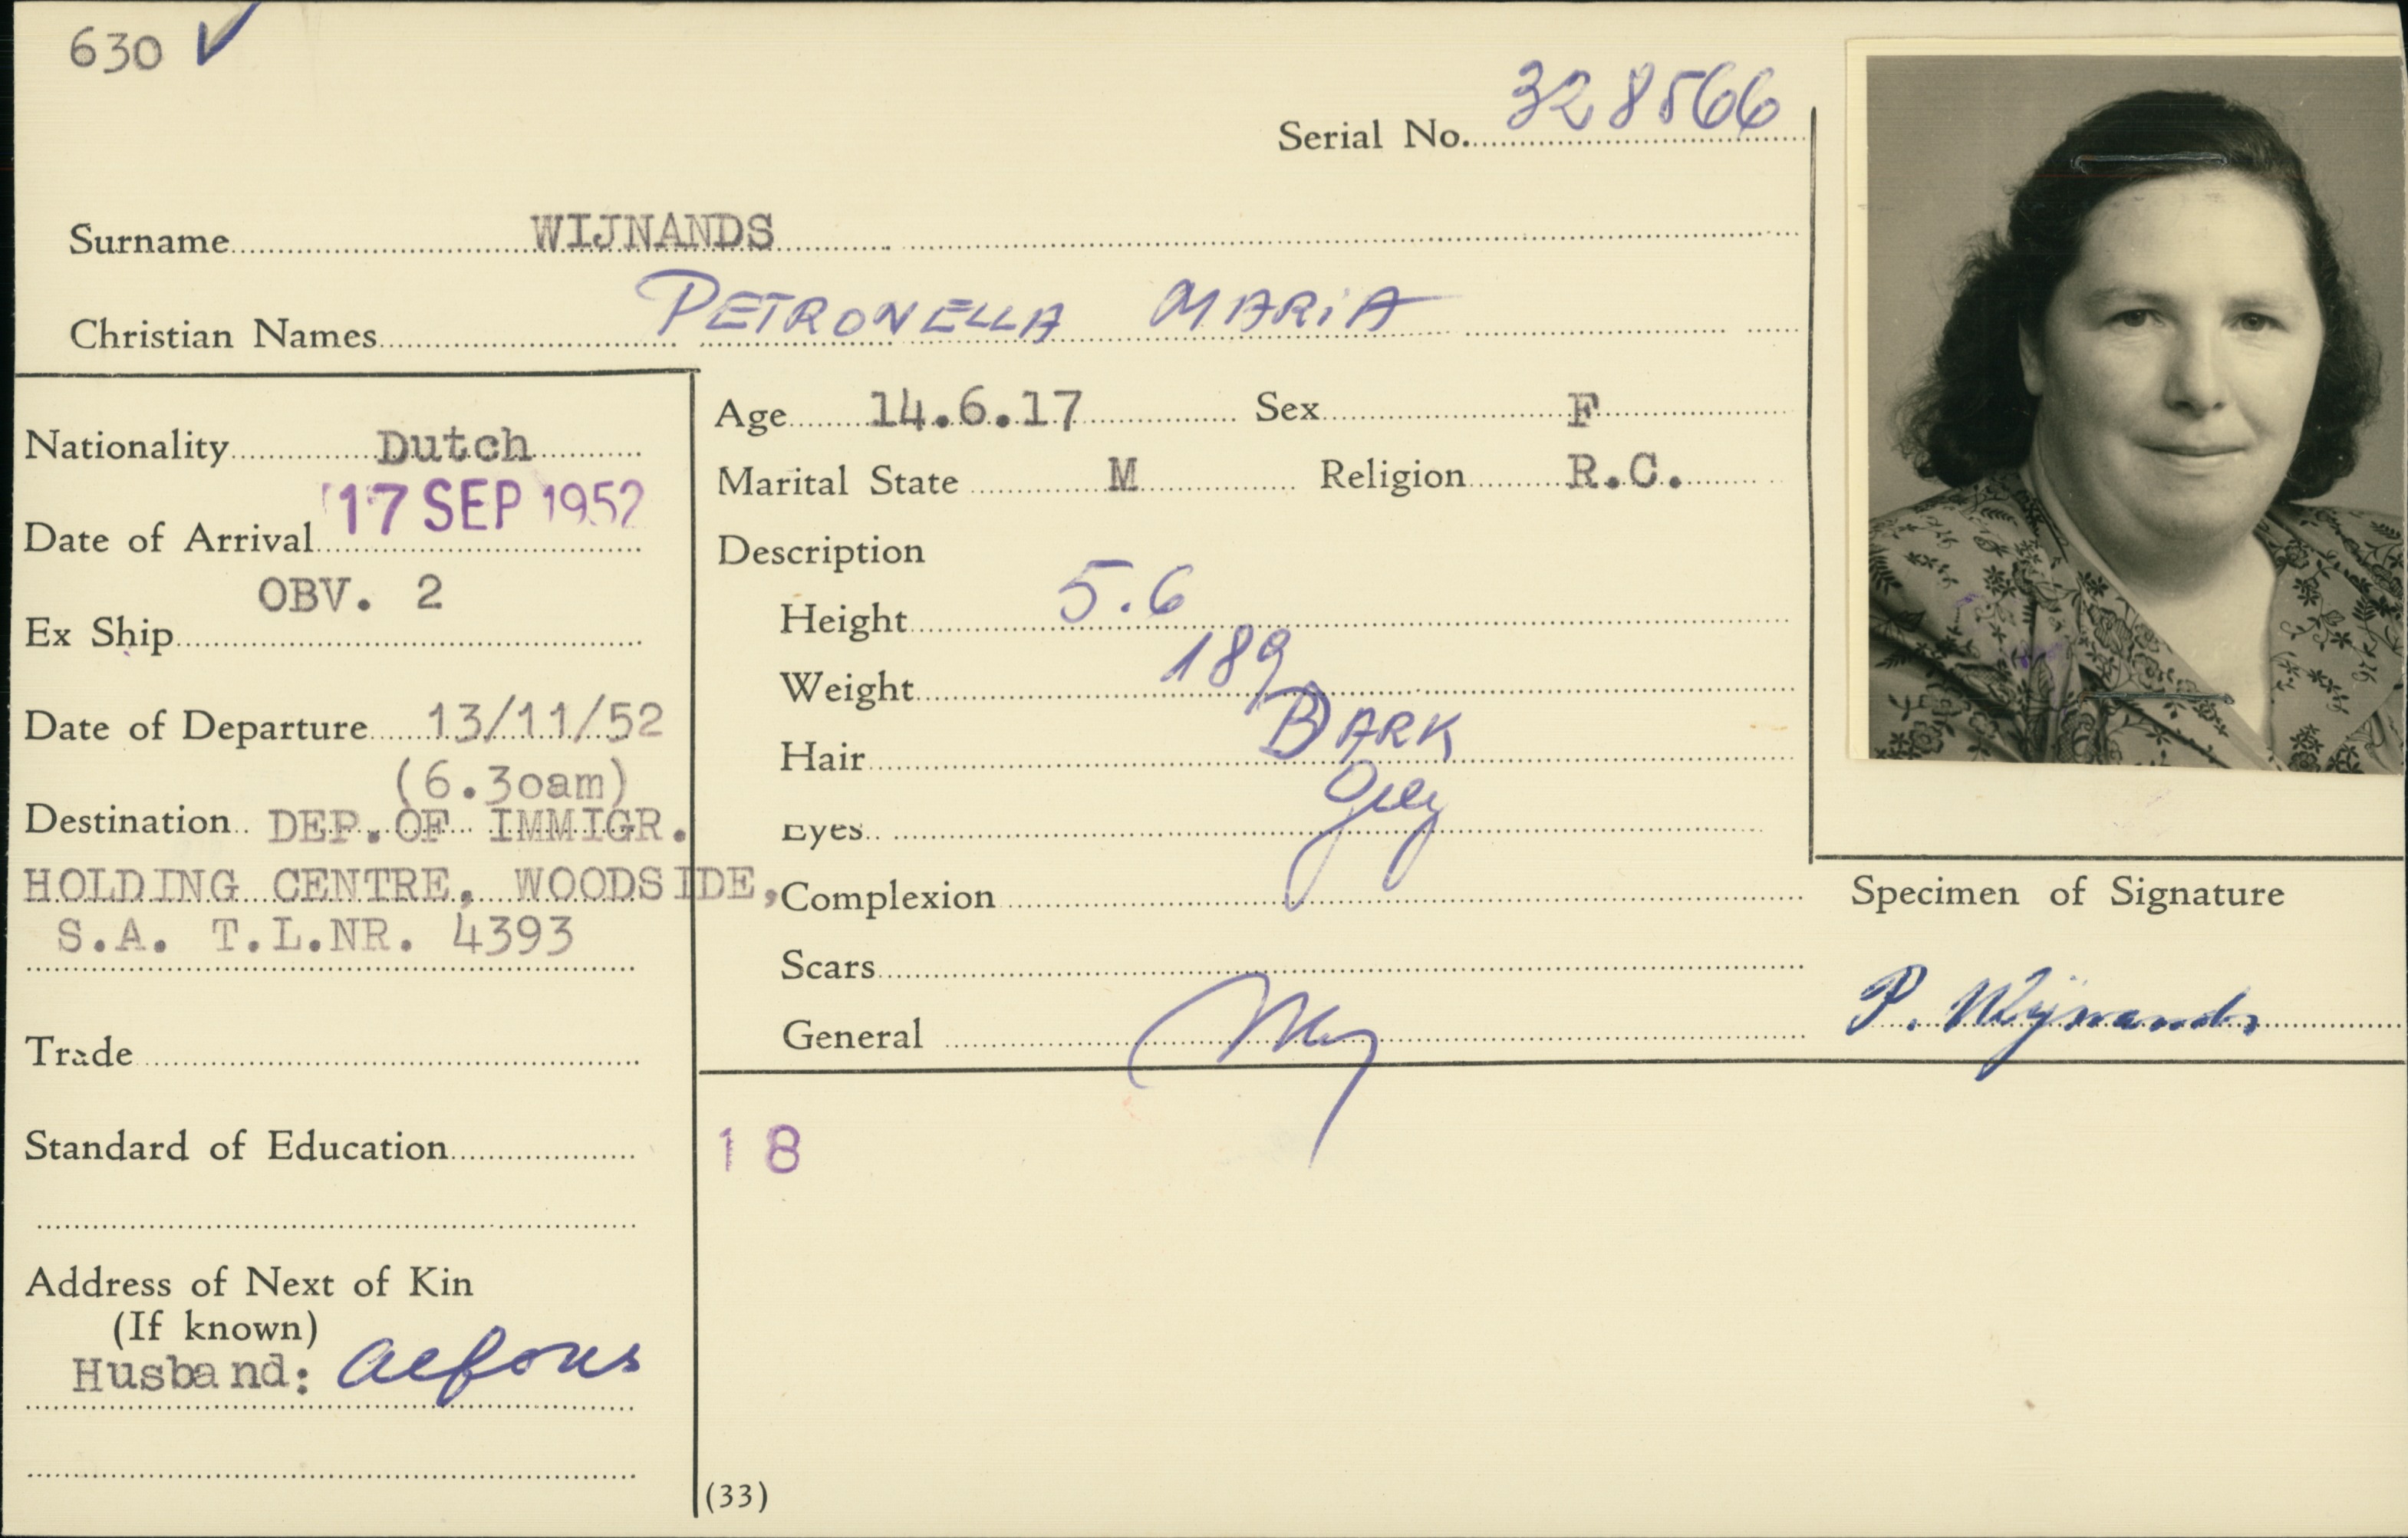 630
Serial No. 328566
Surname WIJNANDS
Christian Names PETRONELLA MARIA
Nationality Dutch
Date of Arrival 17 SEP 1952
OBV. 2
Ex Ship
Date of Departure 13/11/52
(6.30am)
Destination DEP.OF IMMIGR.
HOLDING CENTRE, WOODSIDE,
S.A. T.L.NR. 4393
Trade
Standard of Education
Address of Next of Kin
(If known)
Husband: Alfons
Age 14.6.17 Sex F
Marital State M Religion R.C.
Description
Height 5.6
Weight 189
Hair DARK
Eyes Grey
Complexion
Scars
General
18
(33)
Specimen of Signature
P. Wijnands